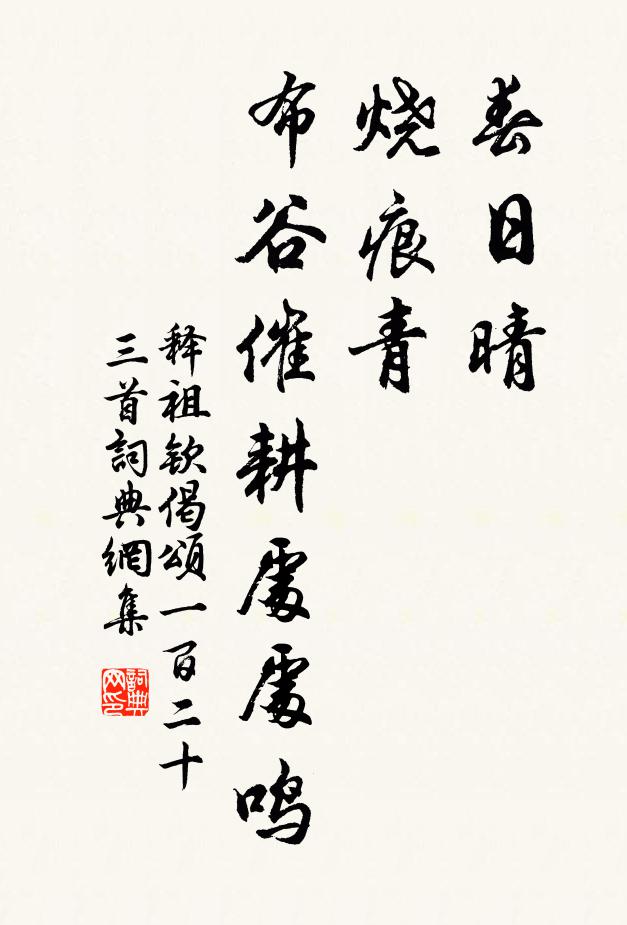 春日晴
烧痕青
布谷催耕處處鸣
释祖钦偈頌一百二十
三首詞典網集
詞典
网印